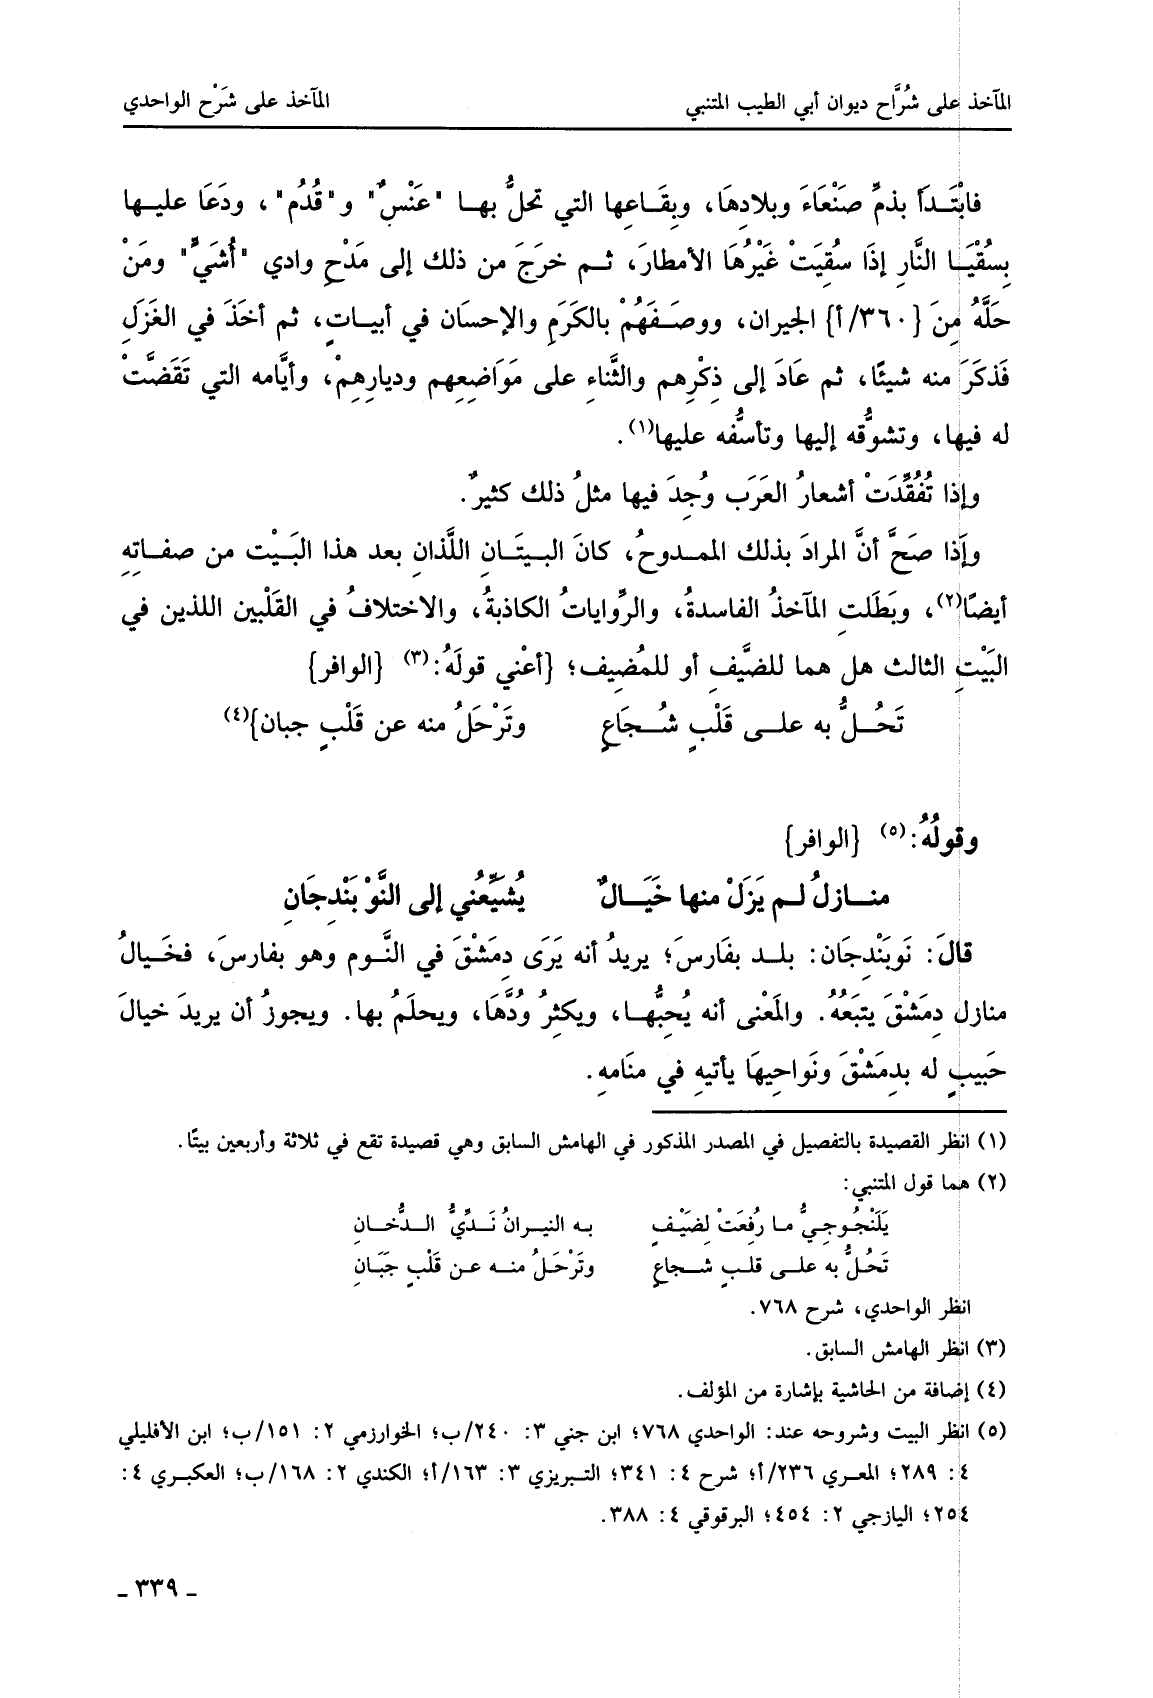 المآخذ على شُرَّاح ديوان أبي الطيب المتنبي المآخذ على شَرْح الواحدي
فابْتَدَأ بذمِّ صَنْعَاءَ وبلادِهَا، وبِقَاعِها التي تحلُّ بهـا "عَنْسٌ" و"قُدُم"، ودَعَا عليـها
بِسُقْيَـا النَّارِ إذَا سُقِيَتْ غَيْرُهَا الأمطارَ، ثـم خرَجَ من ذلك إلى مَدْحِ وادي "أُشَيٍّ" ومَنْ
حَلَّهُ مِنَ {٣٦٠/أ} الجيران، ووصَـفَهُمْ بالكَرَمِ والإحسَان في أبيـاتٍ، ثم أخَذَ في الغَزَلِ
فَذكَرَ منه شيئًا، ثم عَادَ إلى ذِكْرِهم والثَّناءِ على مَوَاضِعِهم وديارِهِمْ، وأيَّامه التي تَقَضَّتْ
له فيها، وتشوُّقه إليها وتأسُّفه عليها(١).
وإذا تُفُقِّدَتْ أشعارُ العَرَب وُجِدَ فيها مثلُ ذلك كثيرٌ.
وإَذا صَحَّ أنَّ المرادَ بذلك الممـدوحُ، كانَ البـيتَـانِ اللَّذانِ بعد هذا البَـيْت من صفـاتِهِ
أيضًا(٢)، وبَطَلَتِ المآخذُ الفاسدةُ، والرِّواياتُ الكاذبةُ، والاختلافُ في القَلْبين اللذين في
البَيْتِ الثالث هل هما للضَّيفِ أو للمُضِيف؛ {أعْني قولَهُ:(٣) {الوافر}
تَحُـلُّ به علـى قَلْبٍ شُـجَاعٍ وتَرْحَلُ منه عن قَلْبٍ جبان}(٤)
وقولُهُ:(٥) {الوافر}
منـازلُ لـم يَزَلْ منها خَيَـالٌ يُشيِّعُني إلى النَّوْ بَنْدِجَانِ
قالَ: نَوبَنْدِجَان: بلـد بفَارسَ؛ يريدُ أنه يَرَى دِمَشْقَ في النَّـوم وهو بفارسَ، فخَيـالُ
منازل دِمَشْقَ يتبَعُهُ. والمَعْنى أنه يُحِبُّهـا، ويكثِرُ وُدَّهَا، ويحلَمُ بها. ويجوزُ أن يريدَ خيالَ
حَبيبٍ له بدِمَشْقَ ونَواحِيهَا يأتيهِ في منَامهِ.
(١) انظر القصيدة بالتفصيل في المصدر المذكور في الهامش السابق وهي قصيدة تقع في ثلاثة وأربعين بيتًا.
(٢) هما قول المتنبي:
يَلَنْجُـوجِيُّ مـا رُفِعَتْ لِضَيْـفٍ بـه النيـرانُ نَـدِّيُّ الـدُّخَـانِ
تَحُلُّ به علـى قلـبٍ شـجاعٍ وتَرْحَـلُ منـه عـن قَلْبٍ جَبَـانِ
انظر الواحدي، شرح ٧٦٨.
(٣) انظر الهامش السابق.
(٤) إضافة من الحاشية بإشارة من المؤلف.
(٥) انظر البيت وشروحه عند: الواحدي ٧٦٨؛ ابن جني ٣: ٢٤٠/ب؛ الخوارزمي ٢: ١٥١/ب؛ ابن الأفليلي
٤: ٢٨٩؛ المعـري ٢٣٦/أ؛ شرح ٤: ٣٤١؛ التـبريزي ٣: ١٦٣/أ؛ الكندي ٢: ١٦٨/ب؛ العكبـري ٤:
٢٥٤؛ اليازجي ٢: ٤٥٤؛ البرقوقي ٤: ٣٨٨.
ـ ٣٣٩ ـ